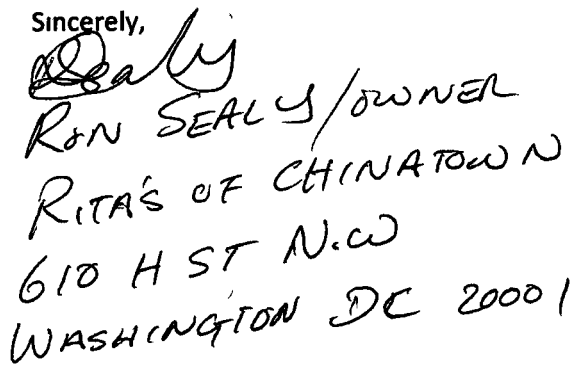 Sincerely,
Sealy
RON SEALY/OWNER
RITA'S OF CHINATOWN
610 H ST N.W
WASHINGTON DC 20001